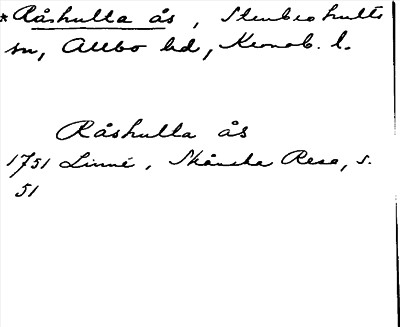 *Råshulla ås, Stenbrohults
sn, Allbo hd, Kronob. l.
Råshulla ås
1751 Linné, Skånska Resa, s.
51